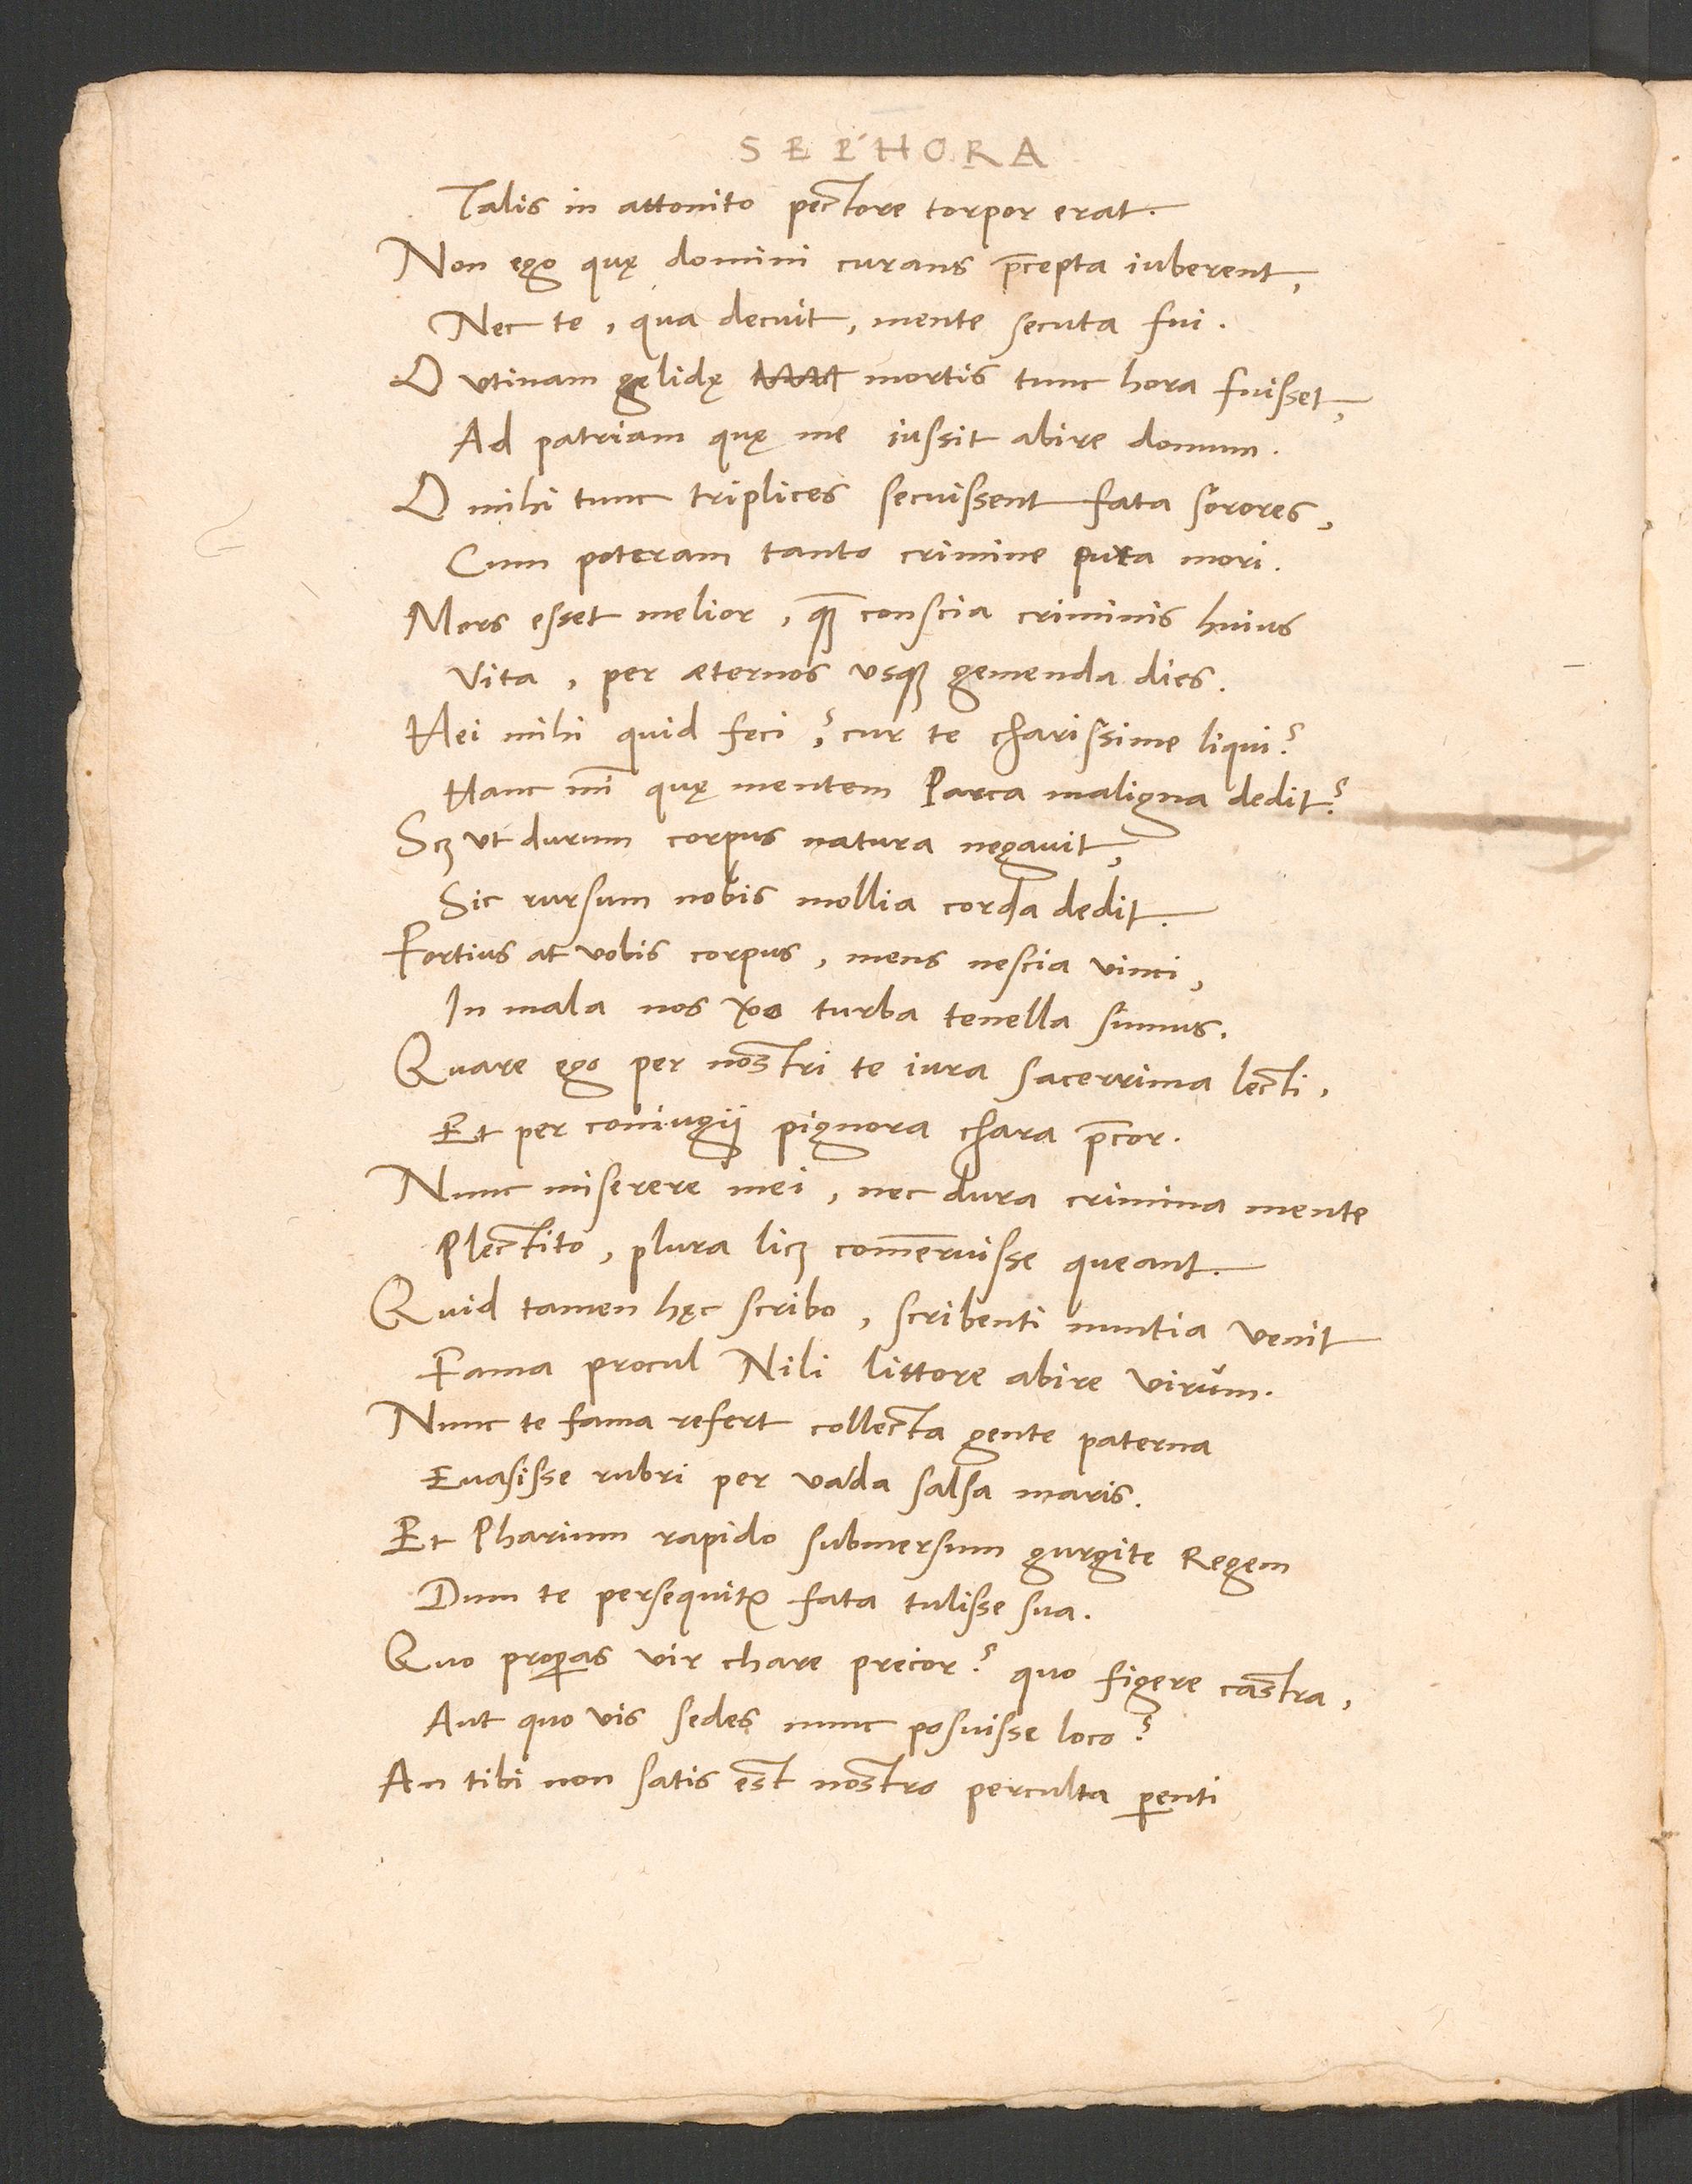 SEPHORA
Talis in attonito pectore torpor erat.
Non ego quę domini curans p̄cepta iuberent,
Nec te, qua decuit, mente secuta fui.
O vtinam gelidę mortis tunc hora fuisset,
Ad patriam quę me iussit abire domum.
O mihi tunc triplices secuissent fata sorores,
Cum poteram tanto crimine pura mori.
Mors esset melior, qꝫ̄ conscia criminis huius
Vita, per æternos vsqꝫ gemenda dies.
Hei mihi quid feci? cur te charissime liqui?
Hanc mī quę mentem Parca maligna dedit?
Sꝫ vt durum corpus natura negauit,
Sic rursum nobis mollia corda dedit.
Fortius at vobis corpus, mens nescia vinci,
In mala nos v̄o turba tenella sumus.
Quare ego per nostri te iura sacerrima lecti,
Et per coniugii pignora chara p̄cor.
Nunc miserere mei, nec dura crimina mente
Plectito, plura licꝫ com̄eruisse queant.
Quid tamen hęc scribo, scribenti nuntia venit
Fama procul Nili littore abire virum.
Nunc te fama refert collecta gente paterna
Euasisse rubri per vada salsa maris.
Et Pharium rapido submersum gurgite Regem
Dum te persequitꝛ fata tulisse sua.
Quo proꝑas vir chare precor? quo figere castra,
Aut quo vis sedes nunc posuisse loco?
An tibi non satis est nostro perculta ꝑenti